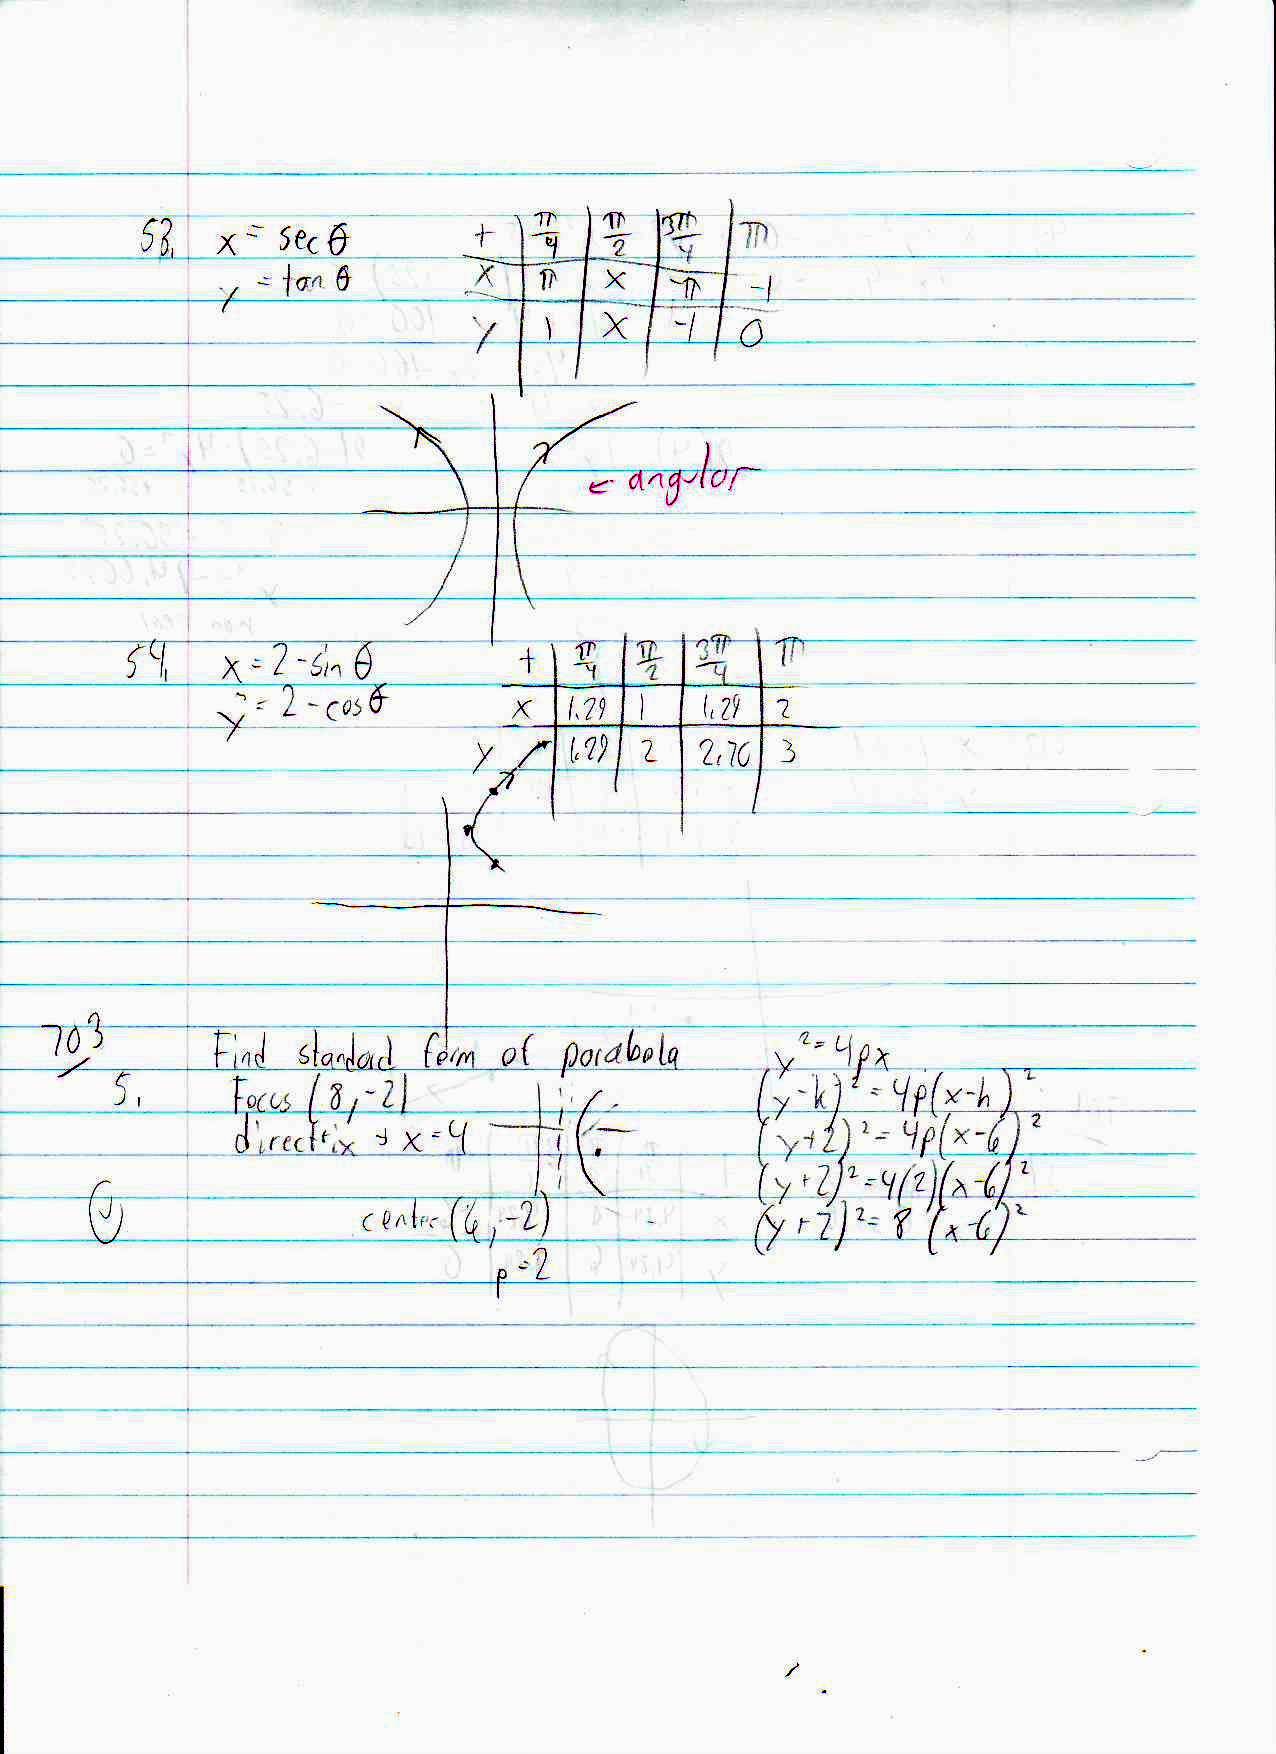 53. x = sec θ
y = tan θ
t | π/4 | π/2 | 3π/4 | π
x | π | x | -π | -1
y | 1 | x | -1 | 0
← angular
54. x = 2 - sin θ
y = 2 - cos θ
t | π/4 | π/2 | 3π/4 | π
x | 1.29 | 1 | 1.29 | 2
y | 1.29 | 2 | 2.70 | 3
703
Find standard form of parabola
5. Focus (8, -2)
directrix → x = 4
center (6, -2)
p = 2
y² = 4px
(y-k)² = 4p(x-h)²
(y+2)² = 4p(x-6)²
(y+2)² = 4(2)(x-6)²
(y+2)² = 8 (x-6)²